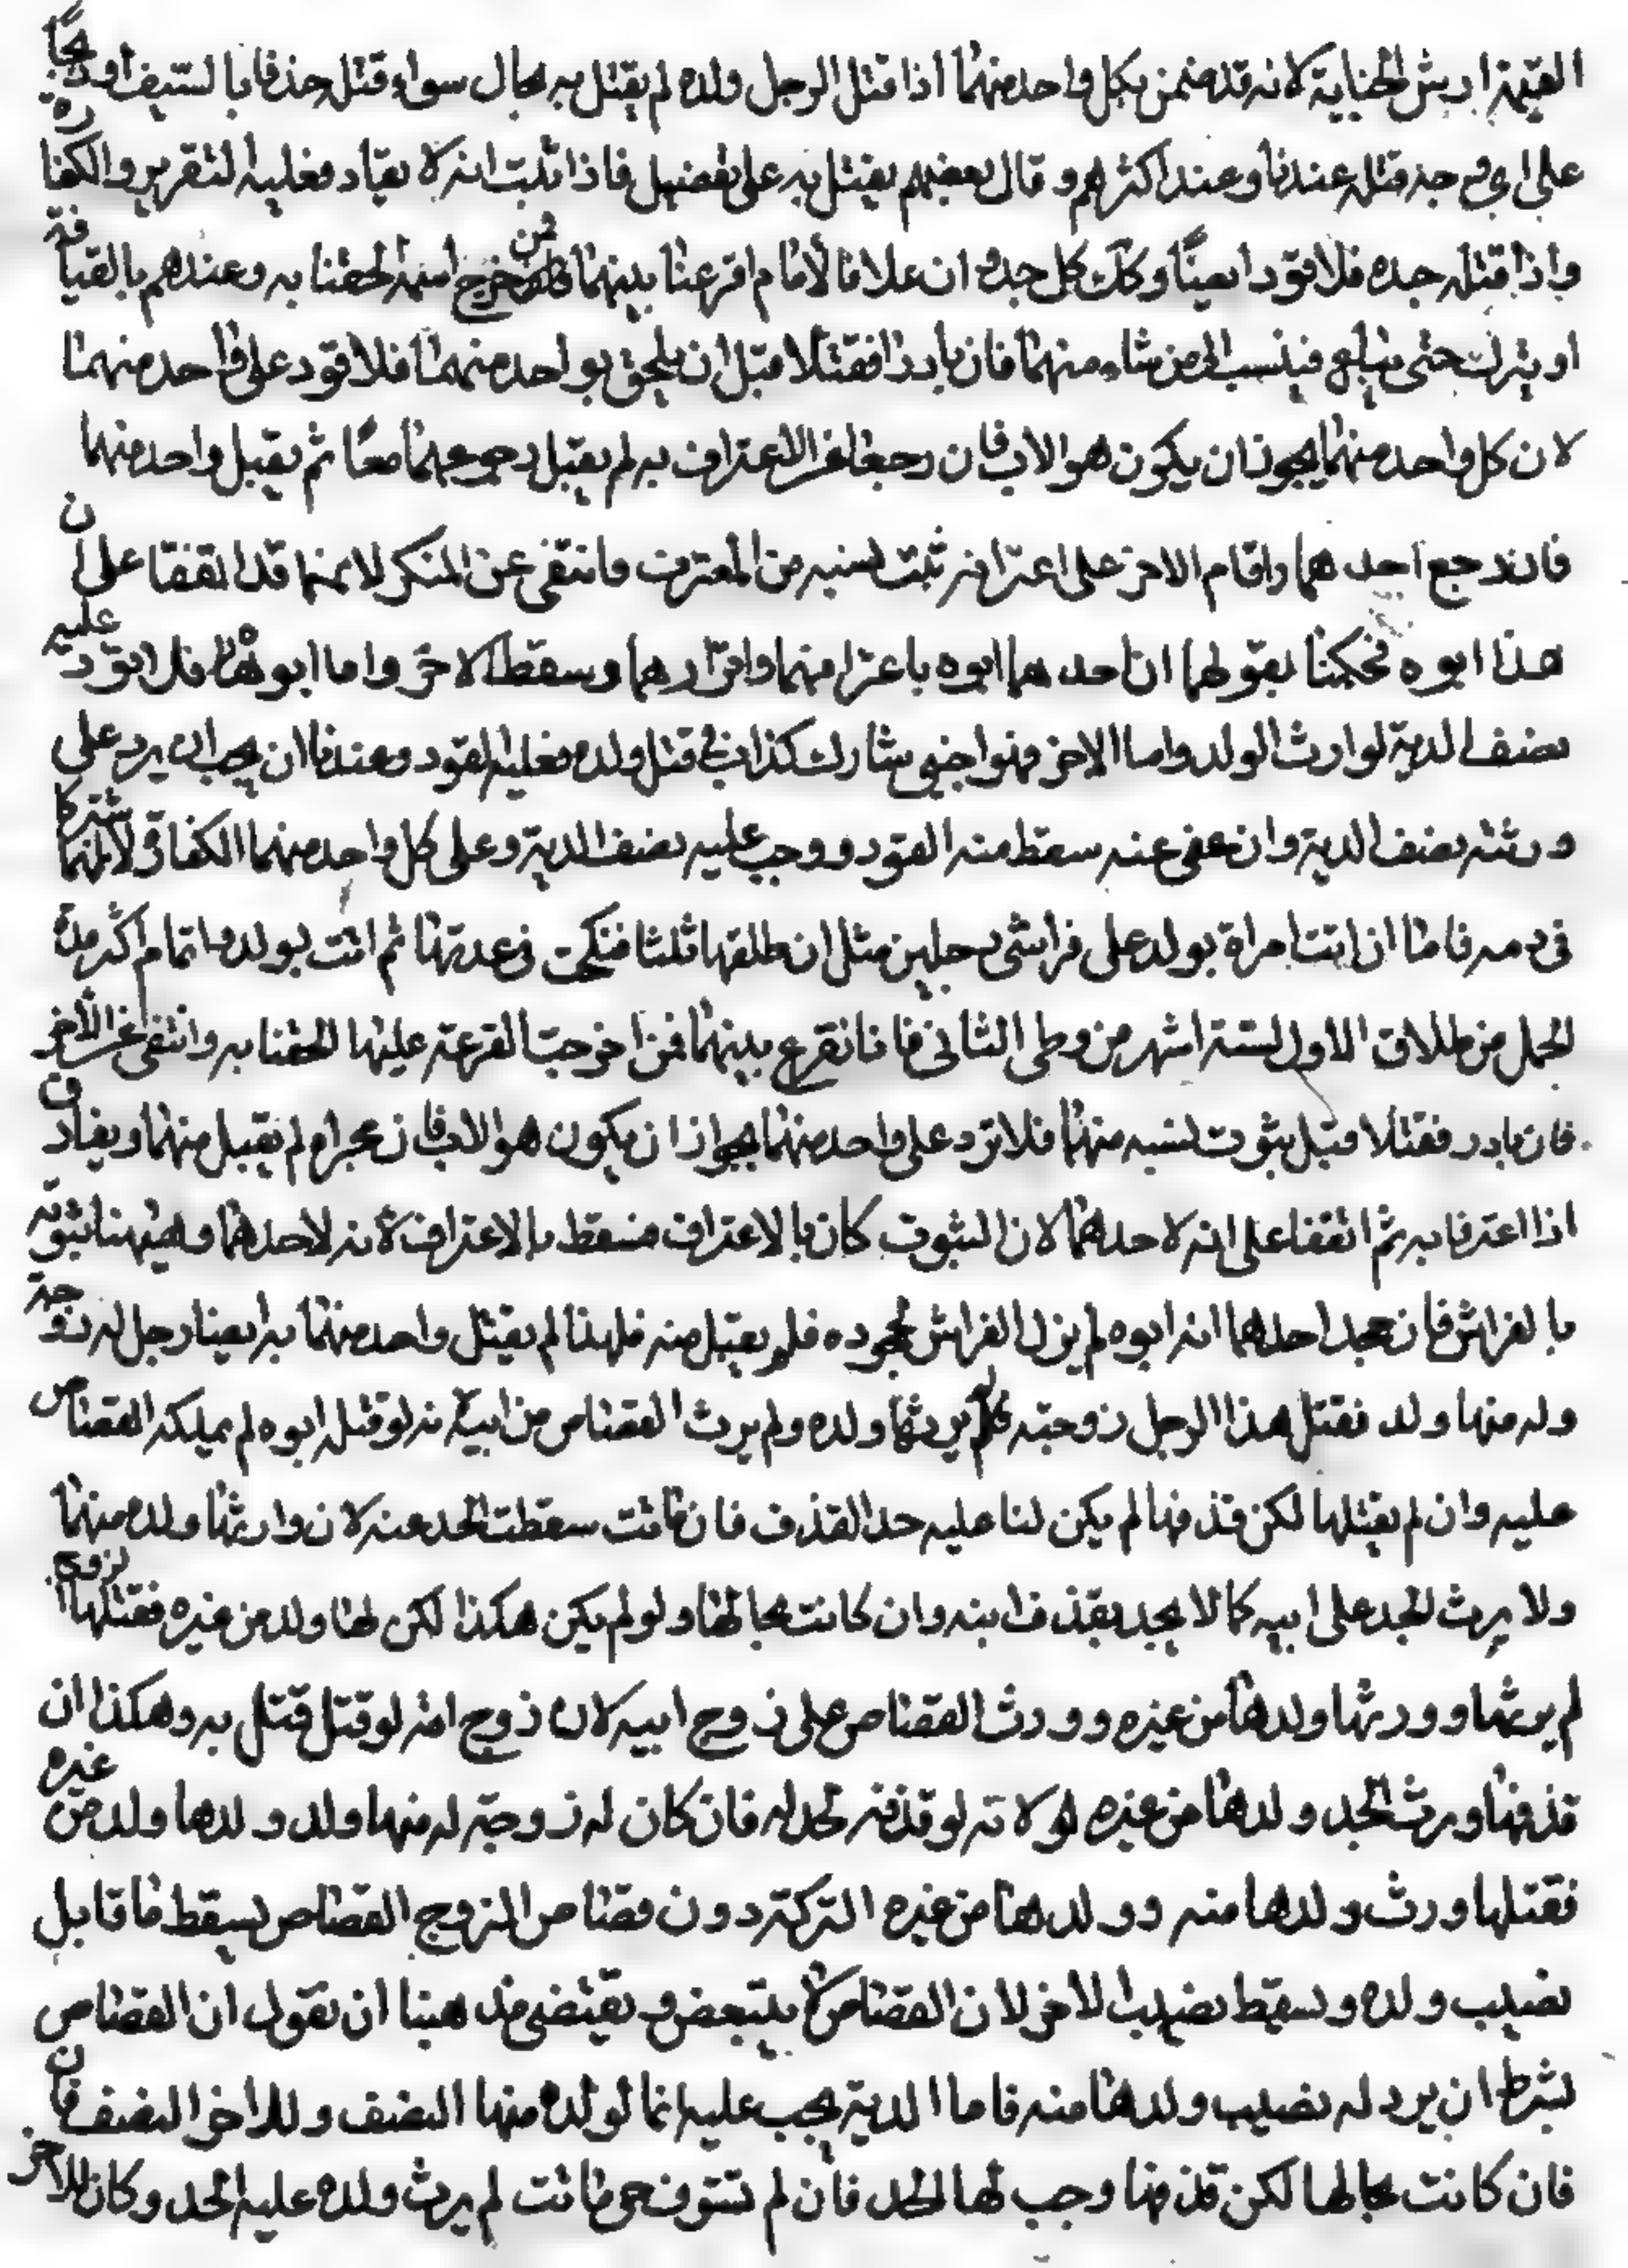 القيمة ارش الجناية لانه قد ضمن بكل واحد منهما اذا قتل الرجل ولده لم يقتل به بحال سواء قتل حذفا بالسيف او ذبحا
على اي وجه قتله عندنا وعند اكثرهم وقال بعضهم يقتل به على تفصيل فاذا ثبت انه لا يقاد فعليه التقرير والكفارة
واذا قتله جده فلا قود ايضًا وكك كل جد وان علا فالامام اقرعنا بينهما فمن خرج اسمه الحقنا به وعندهم بالقيافة
او يترك حتى يبلغ فينسب الى من شاء منهما فان بادرا فقتلا قبل ان يلحق بواحد منهما فلا قود على واحد منهما
لان كل واحد منهما يجوز ان يكون هو الاب فان رجعا عن الاعتراف به لم يقبل رجوعهما معًا ثم يقبل واحد منهما
فان رجع احدهما واقام الاخر على اعترافه ثبت نسبه من المعترف وانتفى عن المنكر لانهما قد اتفقا على ان
هذا ابوه فحكمنا بقولهما ان احدهما ابوه باعترا منهما واقرارهما وسقط الاخر واما ابوه فلا قود عليه
نصف الدية لوارث الولد واما الاخر فهو اجنبي شارك كذا في قتل ولده فعليه القود وعندنا ان يجب ان يرد على
ورثته نصف الدية وان عفى عنه سقط منه القود ووجب عليه نصف الدية وعلى كل واحد منهما الكفارة لانهما شتركا
في دمه فاما ان اتت امراة بولد على فراشى رجلين مثل ان طلقها ثلثا فنكحت في عدتها ثم اتت بولد واتمام اكثر مدة
الحمل من طلاق الاول لستة اشهر من وطى الثاني فانا نقرع بينهما فمن اخرجت القرعة عليها الحقنا به وانتفى عن الاخر
فان بادر فقتلا قبل ثبوت نسبه منهما فلا ترد على واحد منهما بجواز ان يكون هو الاب فان مجرام لم يقبل منهما ويفارق
اذا اعترفا به ثم اتفقا على انه لاحدهما لان الثبوت كان بالاعتراف فسقط بالاعتراف لانه لاحدهما وهيهنا ثبوته
بالفراش فان جحد احدهما انه ابوه لم يزل الفراش بجحوده فلم يقبل منه فلهذا لم يقتل واحد منهما به ايضا رجل له زوجة
وله منها ولد فقتل هذا الرجل زوجته لم يرثها ولده ولم يرث القصاص من ابيه لانه لو قتله ابوه لم يملكه القصاص
عليه وان لم يقتلها لكن قذفها لم يكن لنا عليه حد القذف فان ماتت سقطت الحد عنه لان وارثها ولده منهما
ولا يرث الحد على ابيه كما لا يحد بقذف ابنه وان كانت بحالها ولو لم يكن هكذا لكن لها ولد من غيره فقتلها الزوج
لم يرثها وورثها ولدها من غيره وورث القصاص على زوج ابيه لان زوج امه لو قتل قتل به وهكذا ان
قذفها ورث الحد ولدها من غيره لولانه لو قذفه لحد له فان كان له زوجة له منها ولد ولدها ولد من غيره
فقتلها ورث ولدها منه وولدها من غيره التركة دون قصاص الزوج القصاص لسقط ما قابل
نصيب ولده وسقط نصيب الاخر لان القصاص لا يتبعض ويقتضى مذهبنا ان نقول ان القصاص
بشرط ان يرد له نصيب ولدها منه فاما الدية يجب عليه انما لولده منها النصف وللاخر النصف فان
فان كانت بحالها لكن قذفها وجب لها الحد فان لم تستوف حتى ماتت لم يرث ولده عليه الحد وكان للاخر